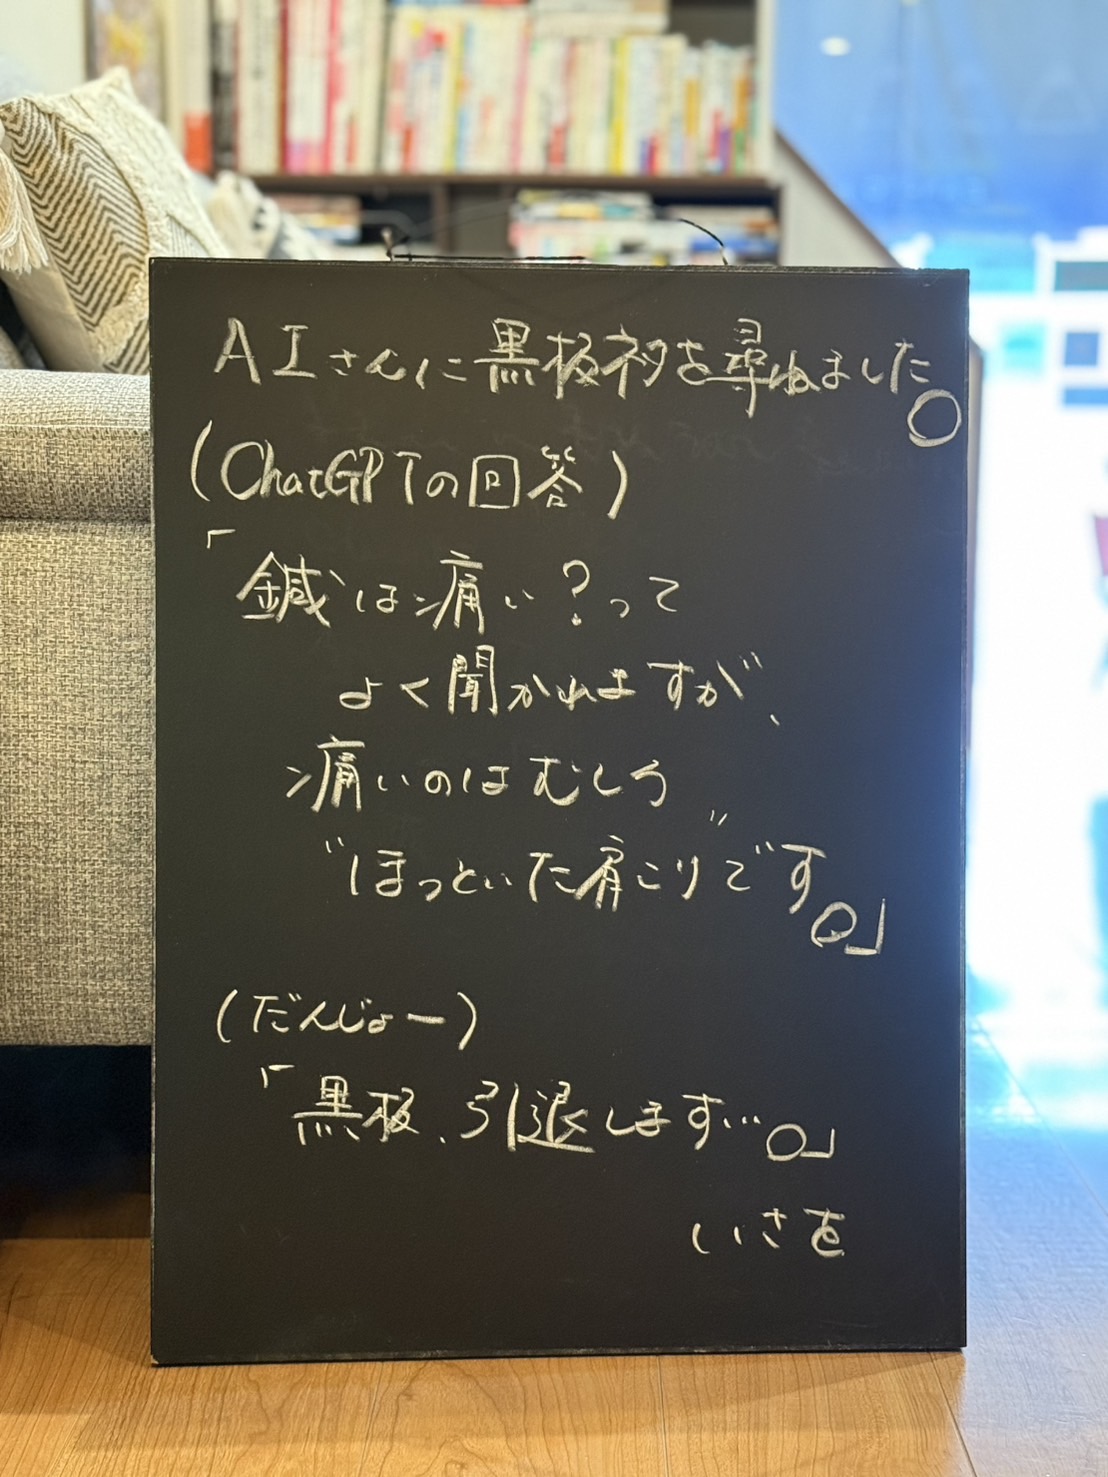 AIさんに黒板ネタを尋ねました。
(ChatGPTの回答)
「鍼は痛い?って
よく聞かれますが、
痛いのはむしろ
"ほっといた肩こり"です。」
(だんじょー)
「黒板、引退します…。」
いさを